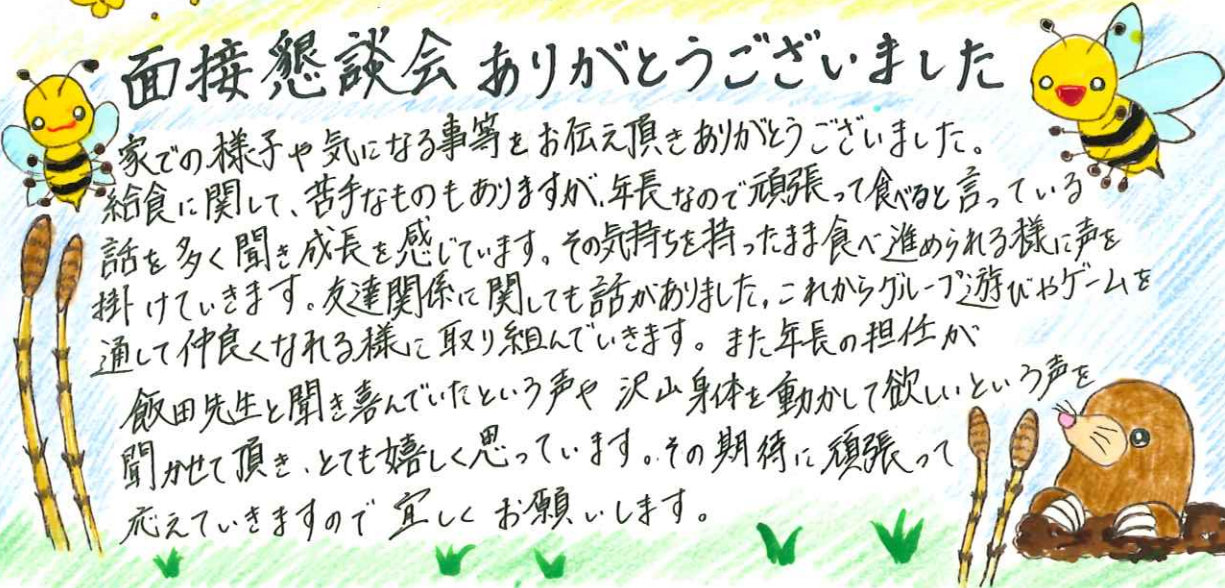 面接懇談会ありがとうございました
家での様子や気になる事等をお伝え頂きありがとうございました。
給食に関して、苦手なものもありますが、年長なので頑張って食べると言っている
話を多く聞き成長を感じています。その気持ちを持ったまま食べ進められる様に声を
掛けていきます。友達関係に関しても話がありました。これからグループ遊びやゲームを
通して仲良くなれる様に取り組んでいきます。また年長の担任が
飯田先生と聞き喜んでいたという声や沢山身体を動かして欲しいという声を
聞かせて頂き、とても嬉しく思っています。その期待に頑張って
応えていきますので宜しくお願いします。